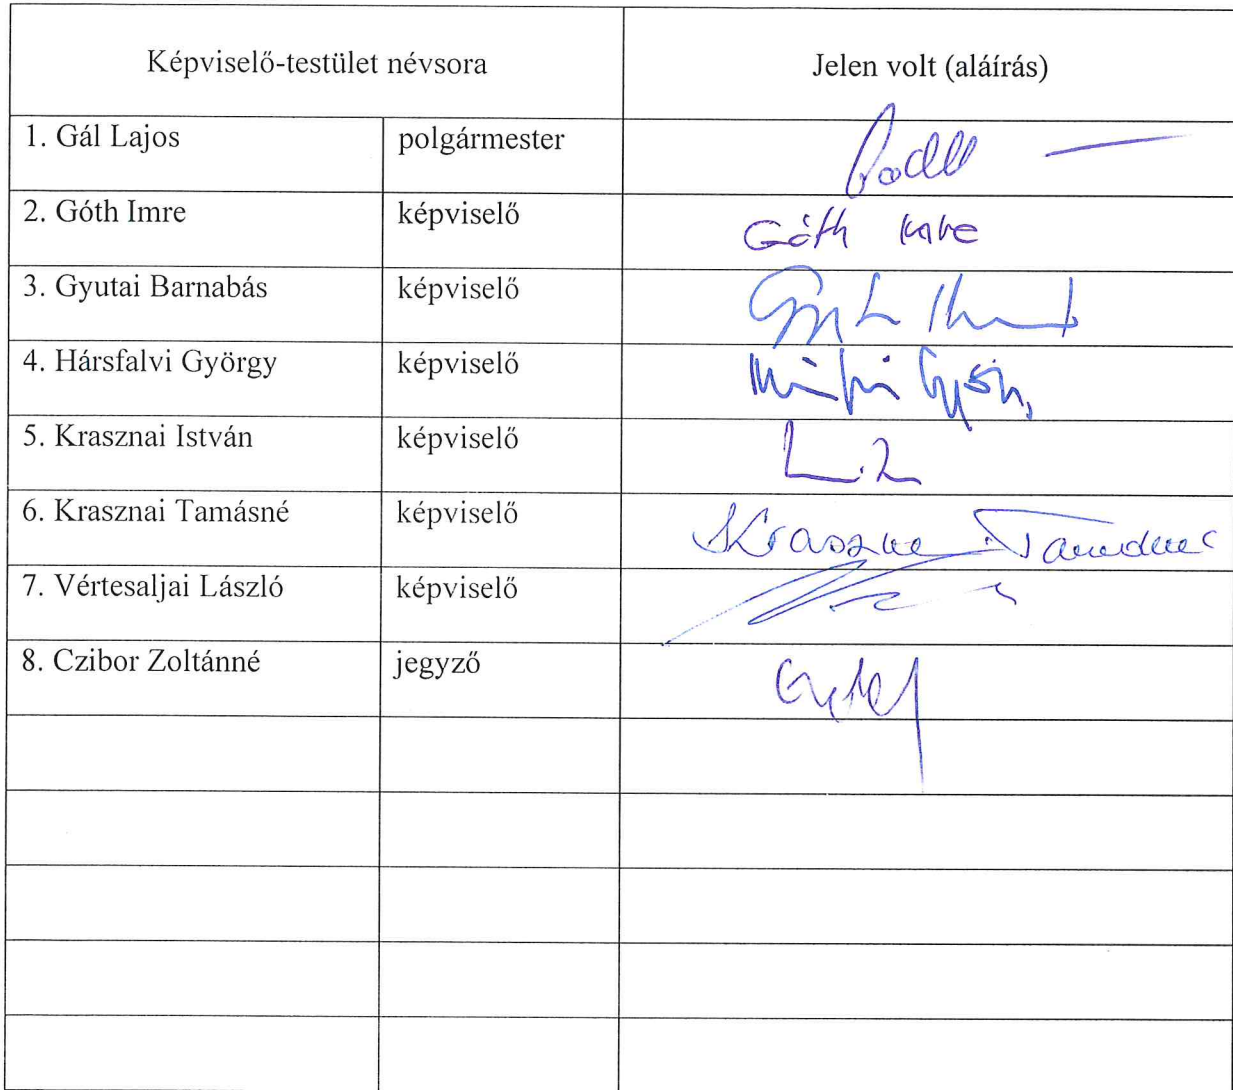 Képviselő-testület névsora Jelen volt (aláírás)
1. Gál Lajos polgármester
2. Góth Imre képviselő Góth Imre
3. Gyutai Barnabás képviselő
4. Hársfalvi György képviselő
5. Krasznai István képviselő
6. Krasznai Tamásné képviselő
7. Vértesaljai László képviselő
8. Czibor Zoltánné jegyző